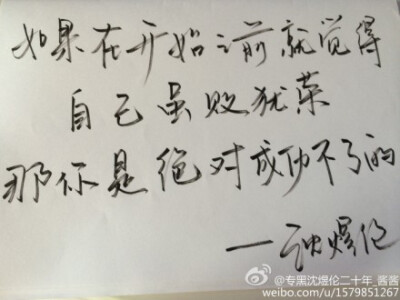 如果在开始之前就觉得
自己虽败犹荣
那你是绝对成功不了的
—沈煜伦
@专黑沈煜伦二十年_酱酱
weibo.com/u/1579851267